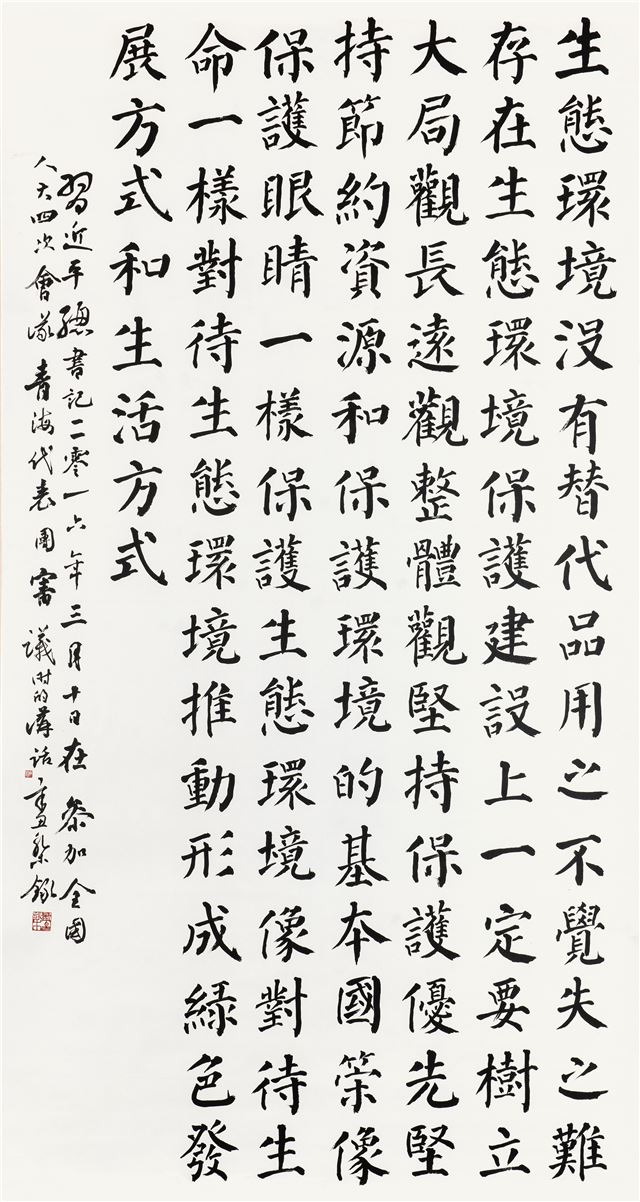 生態環境没有替代品用之不覺失之難
存在生態環境保護建設上一定要樹立
大局觀長遠觀整體觀堅持保護優先堅
持節約資源和保護環境的基本國策像
保護眼睛一樣保護生態環境像對待生
命一樣對待生態環境推動形成綠色發
展方式和生活方式
習近平總書記二零一六年三月十日在參加全國
人大四次會議青海代表團審議时的講話